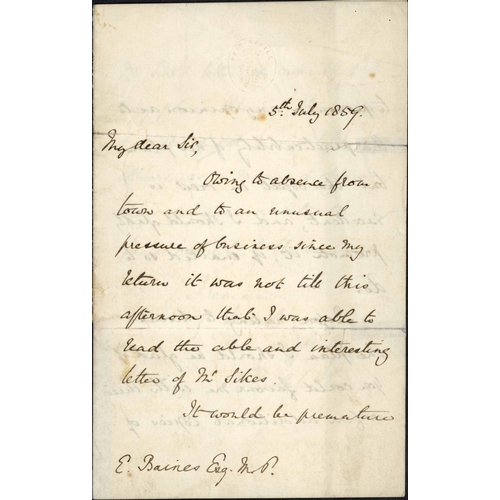 5th July 1859.
My dear Sir,
Owing to absence from
town and to an unusual
pressure of business since my
return it was not till this
afternoon that I was able to
read the able and interesting
letter of Mr Sikes
It would be premature
E. Baines Esq. M.P.